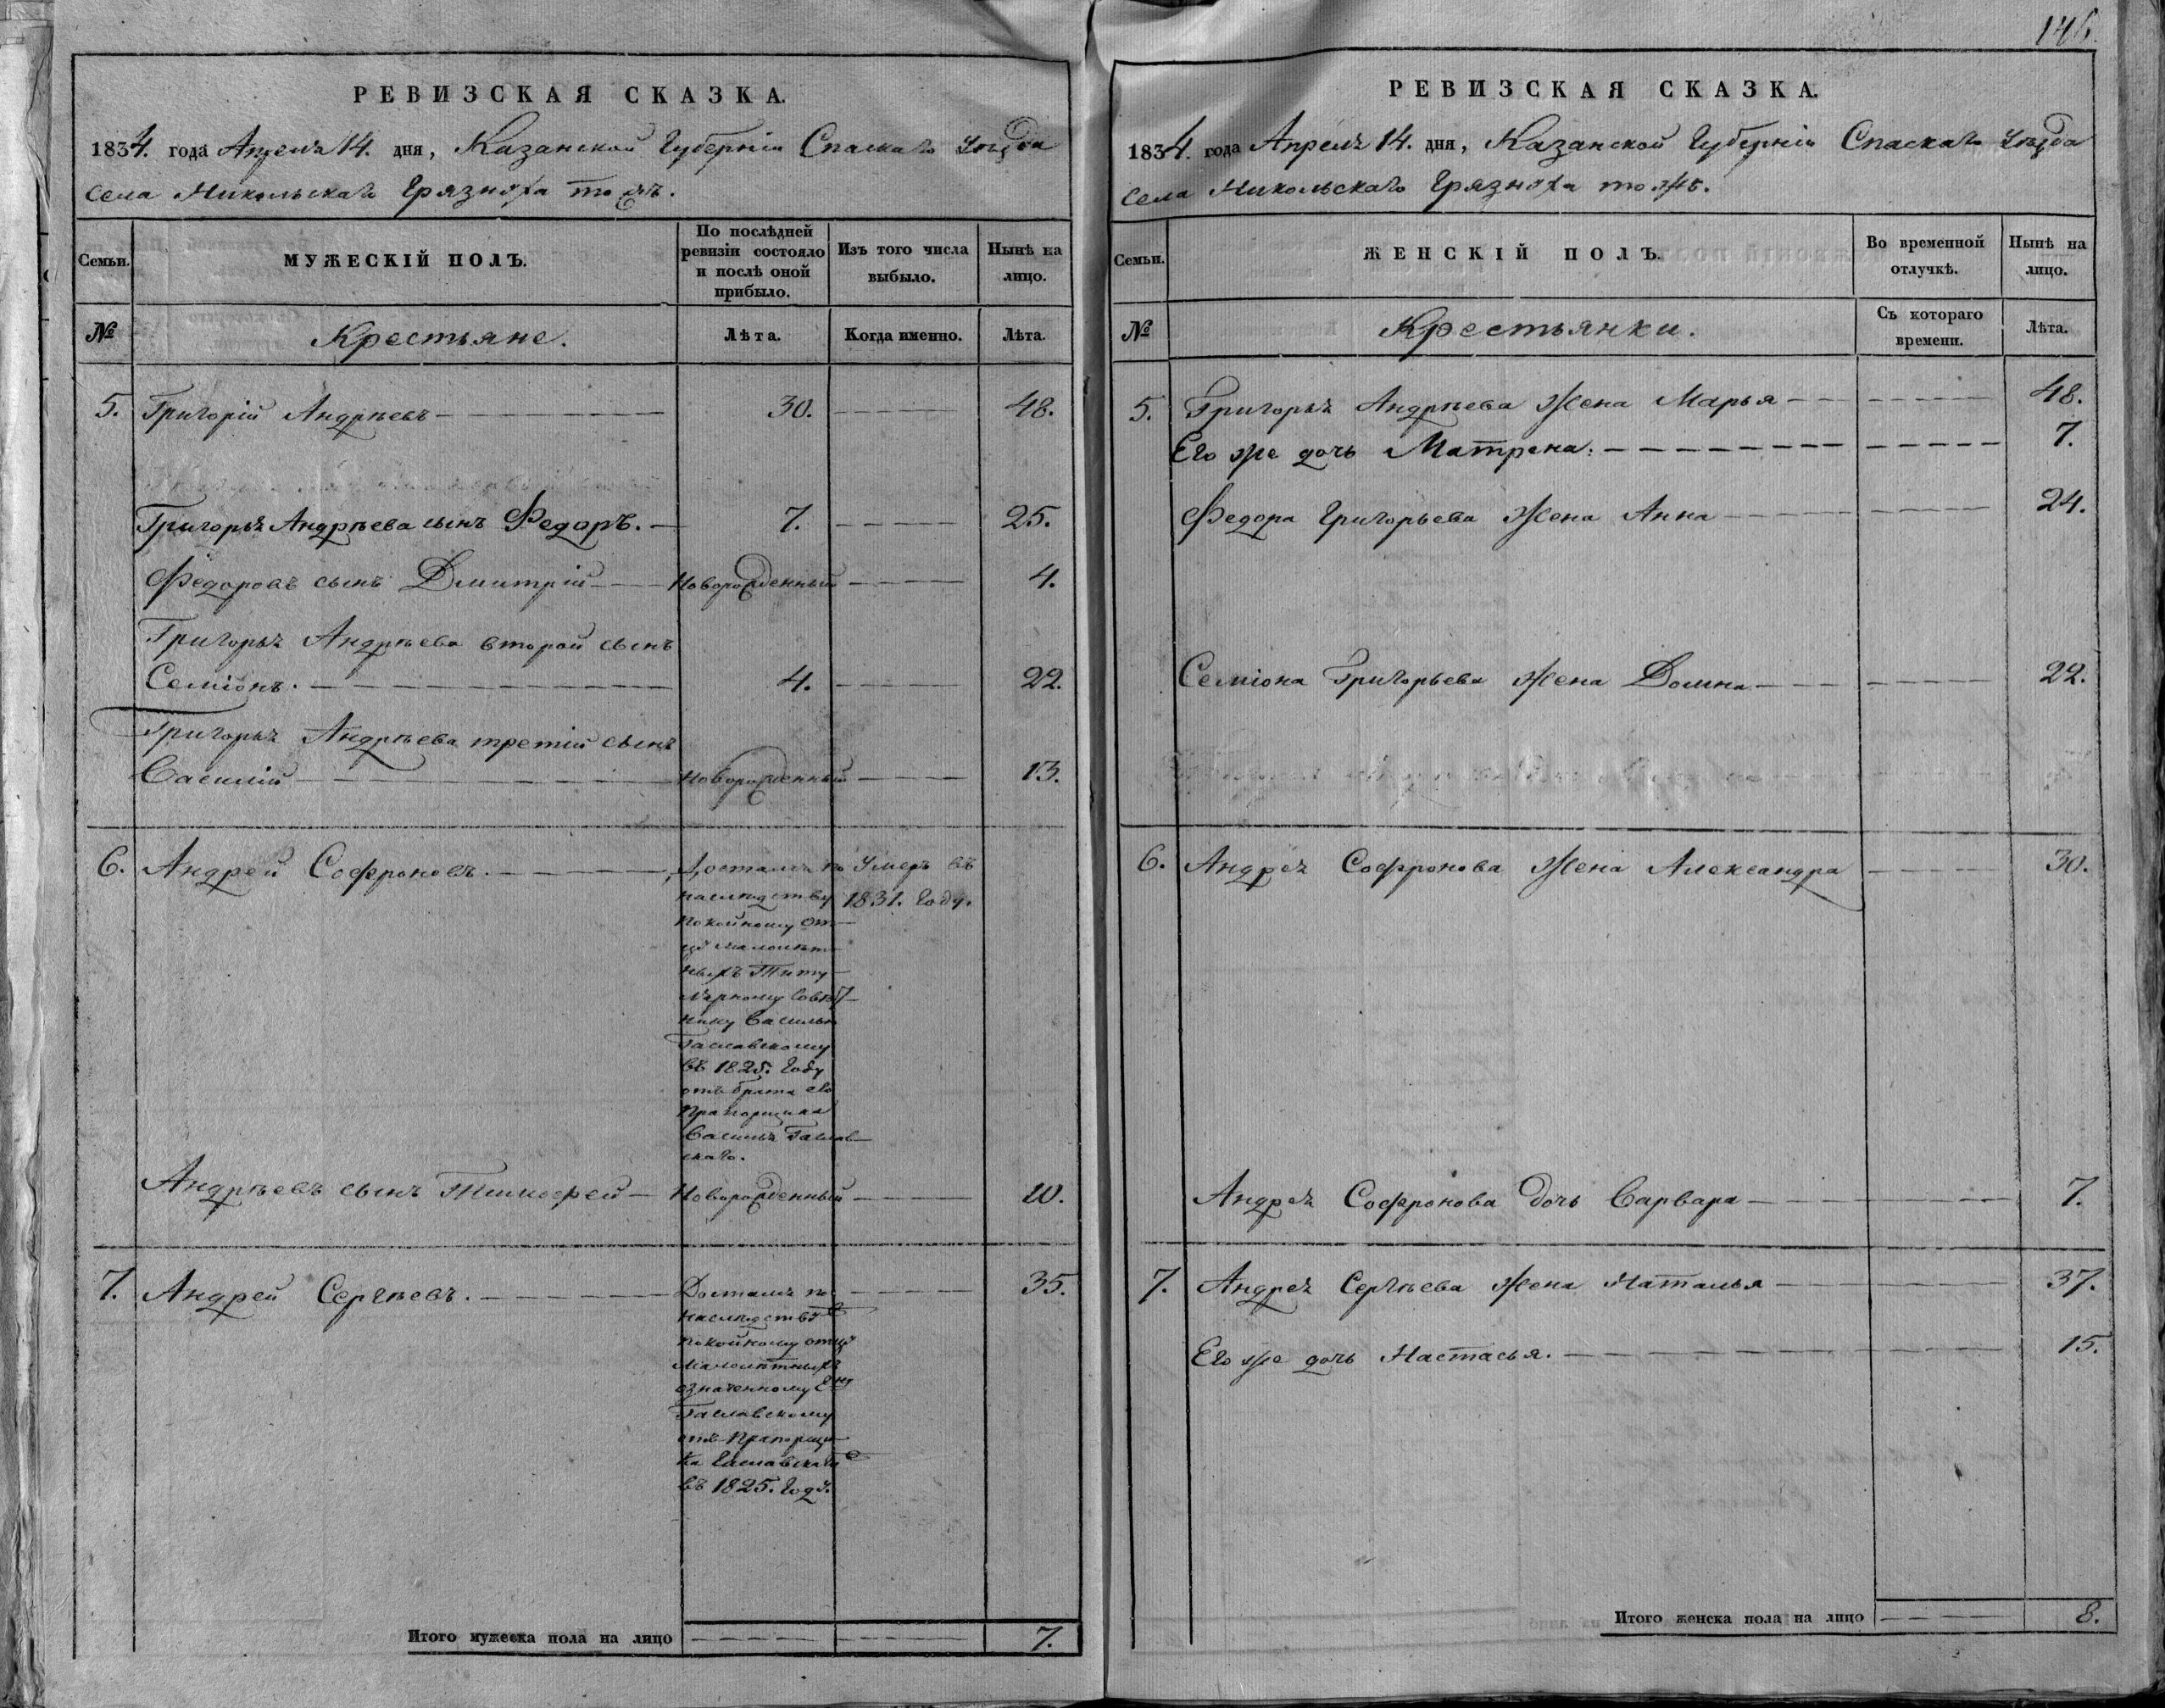 146.
РЕВИЗСКАЯ СКАЗКА.
1834. года Апреля 14. дня, Казанской Губерніи Спаскаго Уѣзда
села Никольскаго Грязнуха тожъ.
Семьи.
МУЖЕСКІЙ ПОЛЪ.
По послѣдней ревизіи состояло и послѣ оной прибыло.
Изъ того числа выбыло.
Нынѣ на лицо.
№
Крестьяне.
Лѣта.
Когда именно.
Лѣта.
5. Григорій Андрѣевъ 30. 48.
Григорья Андрѣева сынъ Федоръ. 7. 25.
Федоровъ сынъ Дмитрій Новорожденный 4.
Григорья Андрѣева второй сынъ
Семіонъ. 4. 22.
Григорья Андрѣева третій сынъ
Василій Новорожденный 13.
6. Андрей Софроновъ. Достался по Умеръ въ
наслѣдству 1831. году.
покойному от-
цу малолѣт-
ныхъ Титу-
лярному Совѣт-
нику Василью
Гаславскому
въ 1825. году
отъ брата его
Прапорщика
Василья Гаслав-
скаго.
Андрѣевъ сынъ Тимофей Новорожденный 10.
7. Андрей Сергѣевъ. Достался по 35.
наслѣдству
покойному отцу
малолѣтныхъ
означенному
Гаславскому
отъ Прапорщи-
ка Гаславскаго
въ 1825. году.
Итого мужеска пола на лицо 7.
РЕВИЗСКАЯ СКАЗКА.
1834. года Апреля 14. дня, Казанской Губерніи Спаскаго Уѣзда
села Никольскаго Грязнуха тожъ.
Семьи.
ЖЕНСКІЙ ПОЛЪ.
Во временной отлучкѣ.
Нынѣ на лицо.
№
Крестьянки.
Съ котораго времени.
Лѣта.
5. Григорья Андрѣева жена Марья 48.
Его же дочь Матрена. 7.
Федора Григорьева жена Анна 24.
Семіона Григорьева жена Домна 22.
6. Андрея Софронова жена Александра 30.
Андрея Софронова дочь Варвара 7.
7. Андрея Сергѣева жена Наталья 37.
Его же дочь Настасья. 15.
Итого женска пола на лицо 8.